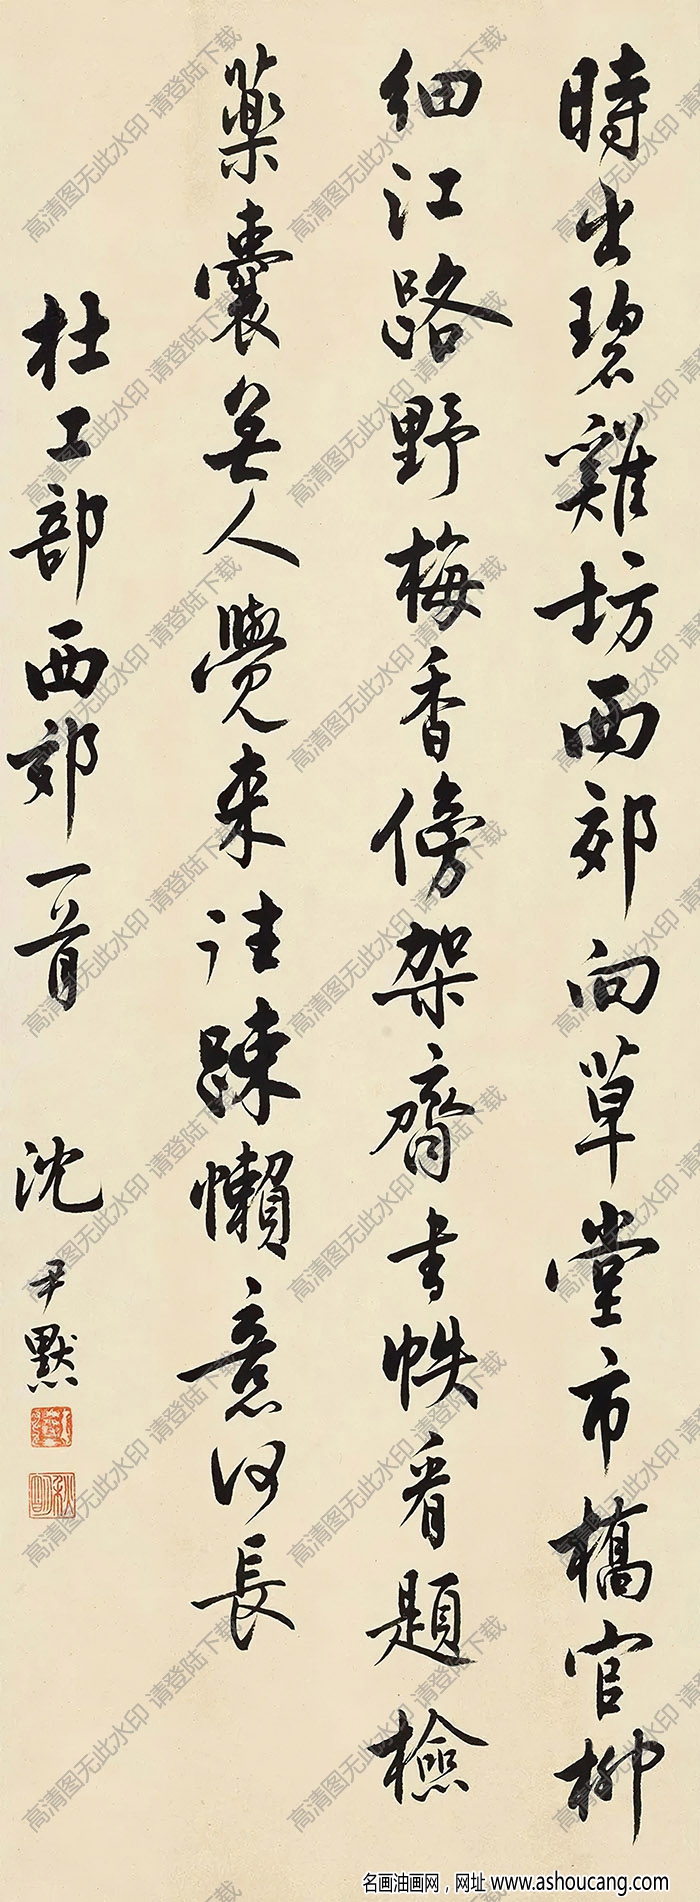 時出碧雞坊西郊向草堂市橋官柳
細江路野梅香傍架齊書帙看題檢
藥囊無人覺来往踈懶意何長
杜工部西郊一首 沈尹默
秋明
高清图无此水印 请登陆下载
名画油画网，网址 www.ashoucang.com